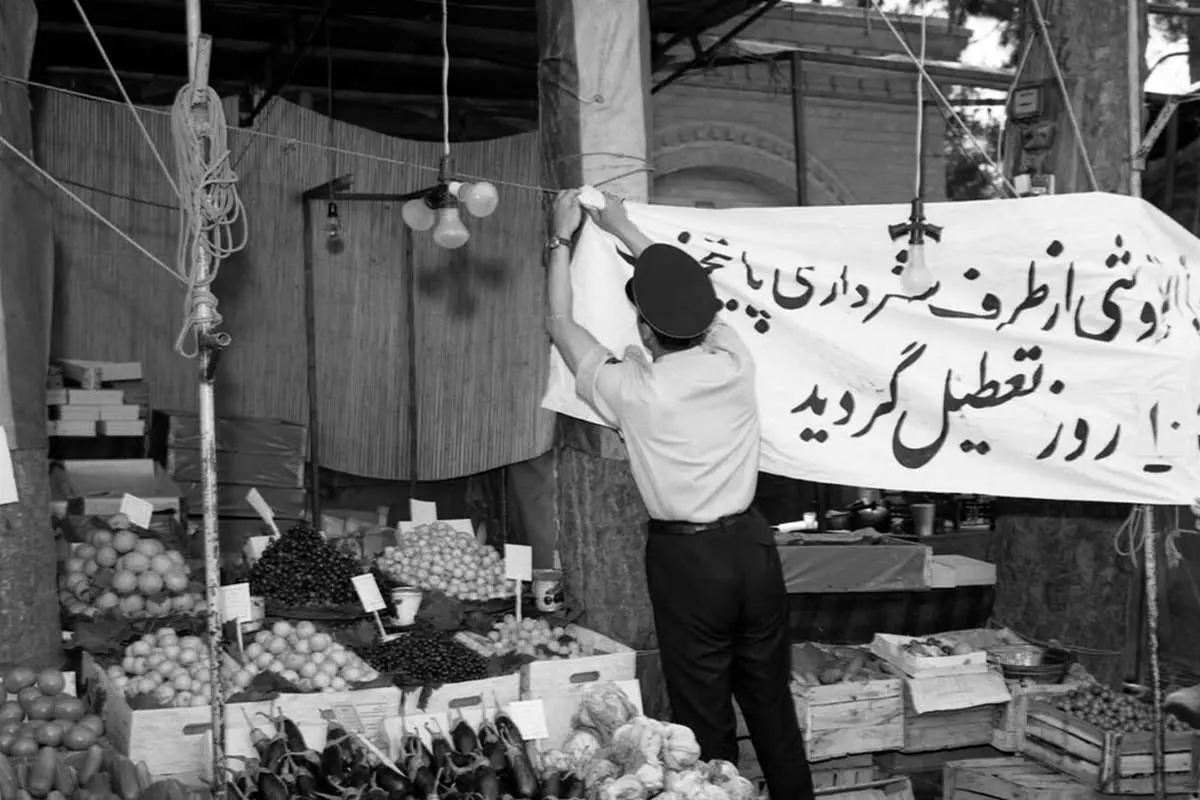 از طرف شهرداری پایتخت
۱۰ روز تعطیل گردید